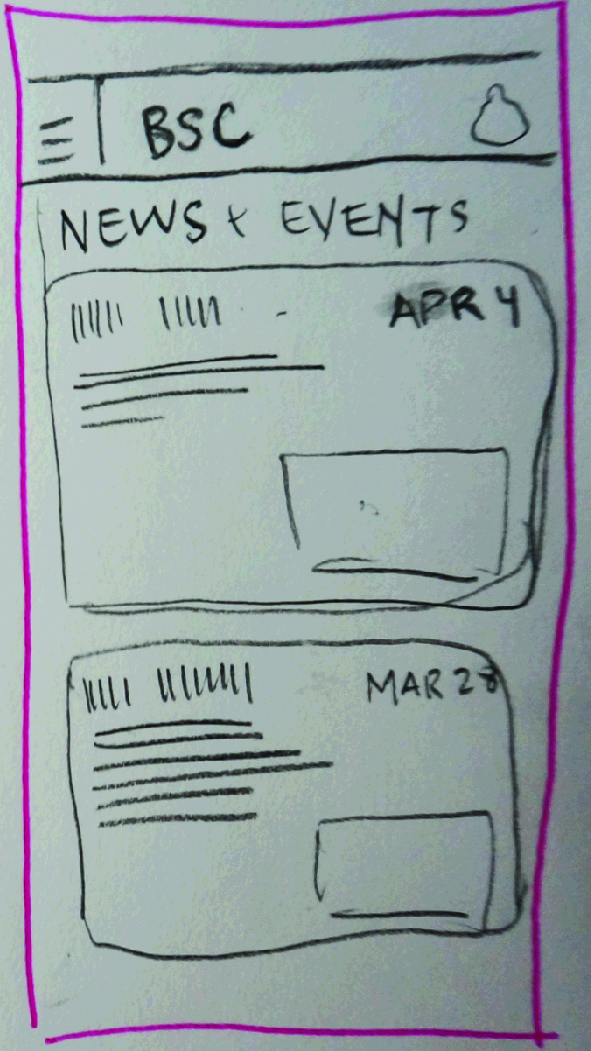 BSC
NEWS + EVENTS
APR 4
MAR 28